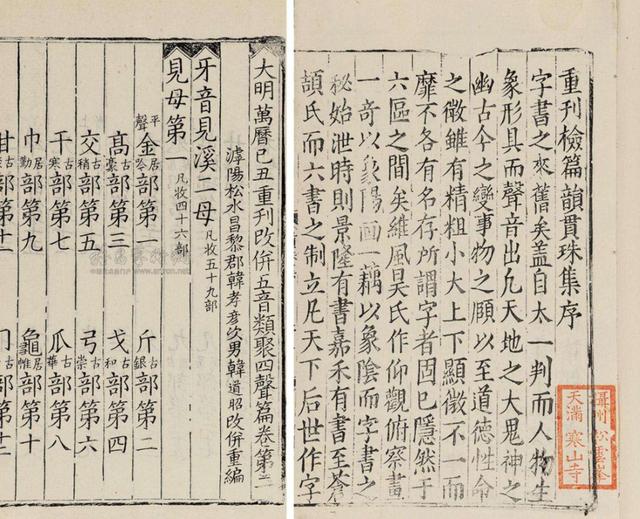 重刊檢篇韻貫珠集序
字書之來舊矣盖自太一判而人物生
象形具而聲音出凡天地之大鬼神之
幽古今之變事物之賾以至道德性命
之微雖有精粗小大上下顯微不一而
靡不各有名存所謂字者固已隱然于
六區之間矣維風昊氏作仰觀俯察畫
一奇以象陽画一藕以象陰而字書之
秘始泄時則景隆有書嘉禾有書至蒼
頡氏而六書之制立凡天下后世作字
攝州松雲峯
天滿寒山寺
大明萬曆己丑重刊改併五音類聚四聲篇卷第二
滹陽松水昌黎郡韓孝彦次男韓道昭改併重編
牙音見溪二母凡收五十九部
見母第一凡收四十六部
平聲金居吟部第一 斤古銀部第二
高古豪部第三 戈古和部第四
交古稍部第五 弓古崇部第六
干古寒部第七 瓜古華部第八
巾居勤部第九 龜居帷部第十